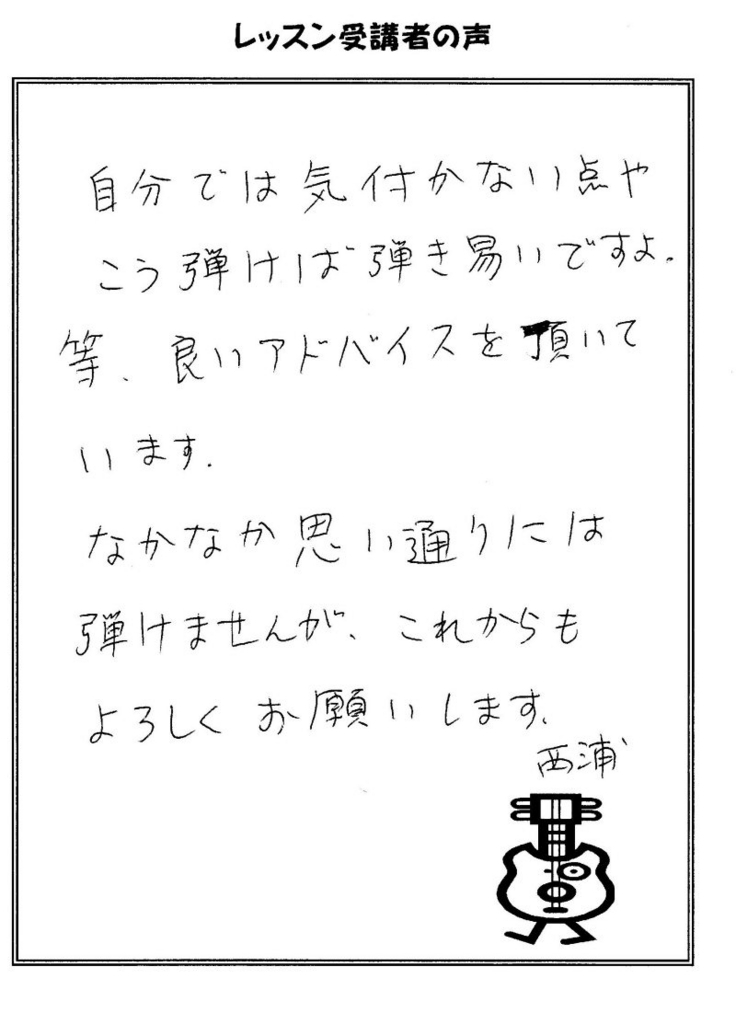 レッスン受講者の声
自分では気付かない点や
こう弾けば弾き易いですよ.
等、良いアドバイスを頂いて
います.
なかなか思い通りには
弾けませんが、これからも
よろしくお願いします.
西浦